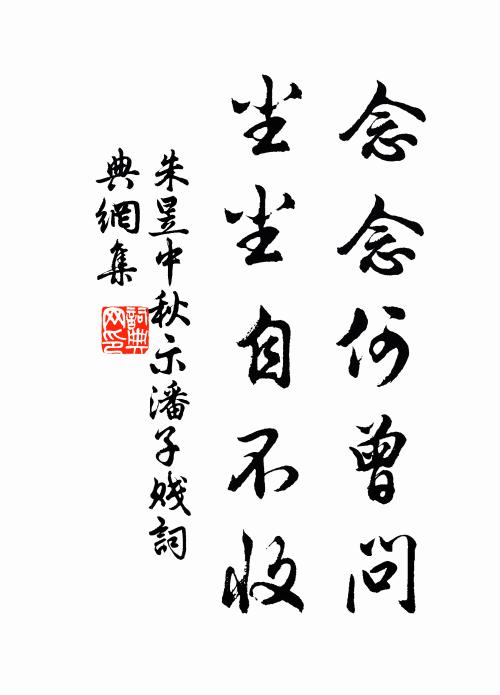 念念何曾問
尘尘自不收
朱昱中秋示潘子賤詞
典網集
詞典网印